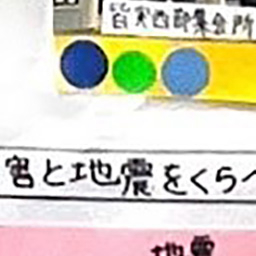 皆実西部集会所
害と地震をくらべ
地震